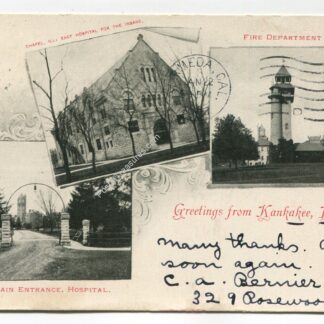 CHAPEL, ILL. EAST HOSPITAL FOR THE INSANE.
FIRE DEPARTMENT
MEDA, CAL.
Greetings from Kankakee,
many thanks.
soon again.
C. A. Bernier
329 Rosewoo
AIN ENTRANCE, HOSPITAL.